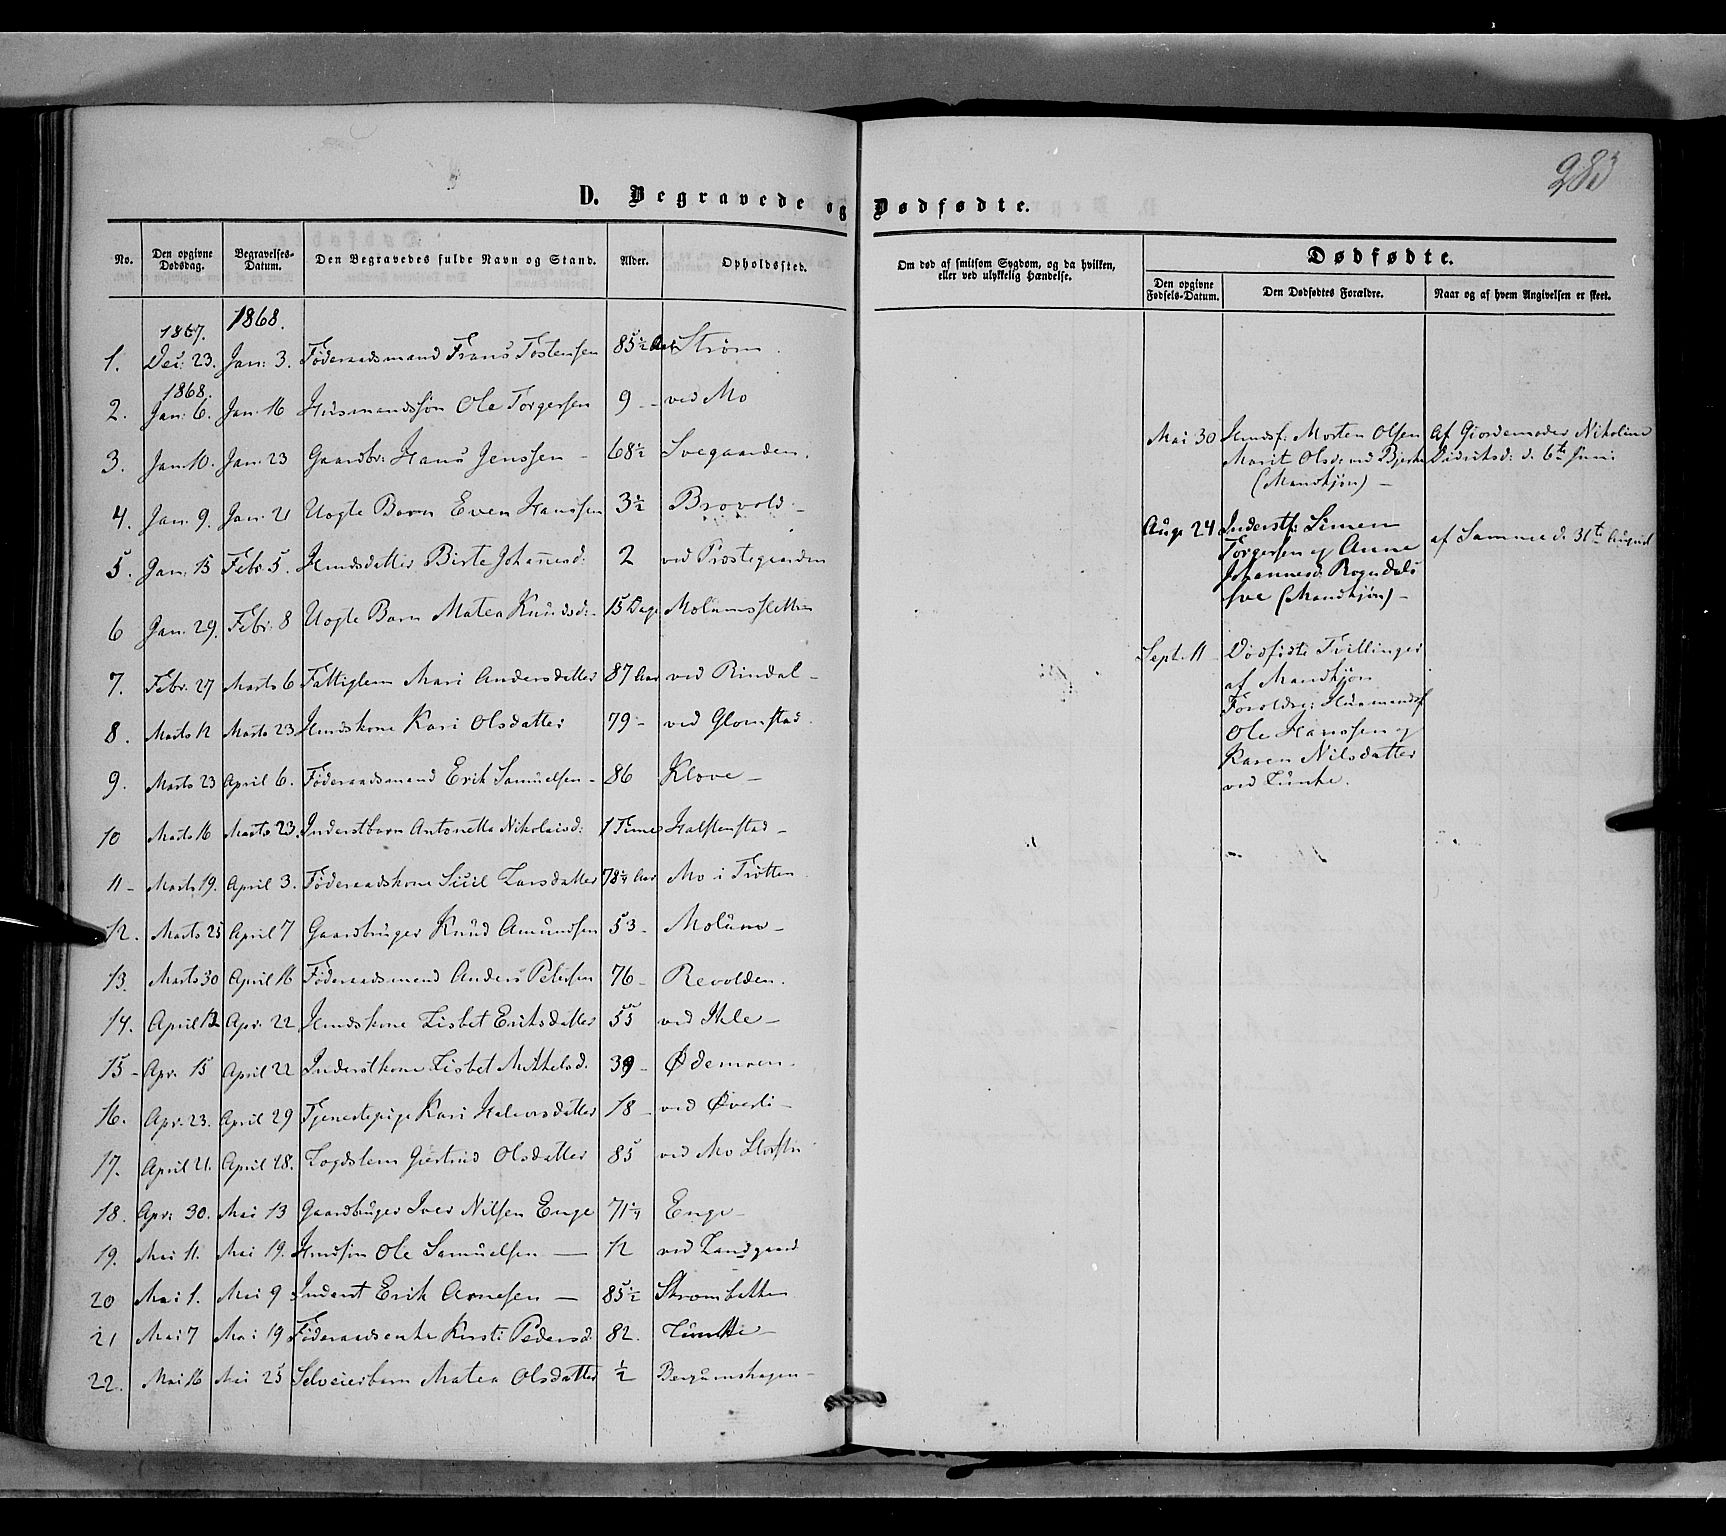 283
D. Begravede og Dødfødte.
No. Den opgivne Dødsdag. Begravelses-Datum. Den Begravedes fulde Navn og Stand. Alder. Opholdssted.
Om død af smitsom Sygdom, og da hvilken, eller ved ulykkelig Hændelse.
Dødfødte.
Den opgivne Fødsels-Datum. Den Dødfødtes Forældre. Naar og af hvem Angivelsen er skeet.
1867. 1868.
1. Dec: 23. Jan: 3. Føderaadsmand Frans Tostensen 85½ Aar Strøm.
1868.
2. Jan: 6. Jan: 16 Husmandssøn Ole Torgersen 9 - ved Mo
3. Jan: 10. Jan: 23 Gaardbr: Hans Jenssen - 68½ Svegaarden.
4. Jan: 9. Jan: 21 Uægte Barn Even Hanssen 3½ Brovold -
5. Jan: 15 Febr: 5. Hmdsdatter Birte Johannesd: 2 ved Prostegaarden
6 Jan: 29. Febr: 8 Uægte Barn Matea Knudsd: - 15 Dage Molumsletten
7. Febr: 27 Marts 6 Fattiglem Mari Andersdatter 87 Aar ved Rindal -
8. Marts 12 Marts 23 Hmdskone Kari Olsdatter 79 - ved Glomstad.
9. Marts 23 April 6. Føderaadsmand Erik Samuelsen - 86 Klove -
10 Marts 16 Marts 23. Inderstbarn Antonetta Nikolaisd: 1 Time Halstenstad -
11 - Marts 19. April 3. Føderaadskone Siül Larsdatter 78¼ Aar Mo i Trøtten
12. Marts 25 April 7 Gaardbruger Knud Amundsen 53 - Molum -
13. Marts 30 April 16 Føderaadsmand Anders Pedersen 76 - Revolden.
14. April 12 Apr: 22 Hmdskone Lisbet Eriksdatter 55 ved Hele -
15 - Apr: 15 April 22 Inderstkone Lisbet Mikkelsd. 39 - Ødemoen.
16. Apr: 23. April 29 Tjenestepige Kari Halvorsdatter 18 - ved Øverli -
17. April 21. April 28. Lægdslem Giertrud Olsdatter 85 ved Mo
18. Apr: 30. Mai 13 Gaardbruger Iver Nilsen Enge 71¼ Enge -
19. Mai 11. Mai 19. Hmdsøn Ole Samuelsen — 12 ved Landgaard
20 Mai 1. Mai 9 Inderst Erik Arnesen — 85½ Strømbakken
21 Mai 7 Mai 19 Føderaadsenke Kirsti Pedersd: 82. Lunke -
22. Mai 16 Mai 25 Selveierbarn Matea Olsdatter ½ Bergumshagen -
Mai 30 Hmdsf: Morten Olsen Af Giordemoder Nikoline
Marit Olsd: ved Bjerke Didriksd: d. 6te Juni
(Mandkjøn) -
Aug: 24 Inderstf: Simen
Torgersen og Anne af Samme d. 31te August
Johannesd: Rogndals
sve (Mandkjøn) -
Sept: 11 Dødfødte Tvillinger
af Mandkjøn
Forældre: Huusmandsf
Ole Hanssen og
Karen Nilsdatter
ved Lunke.